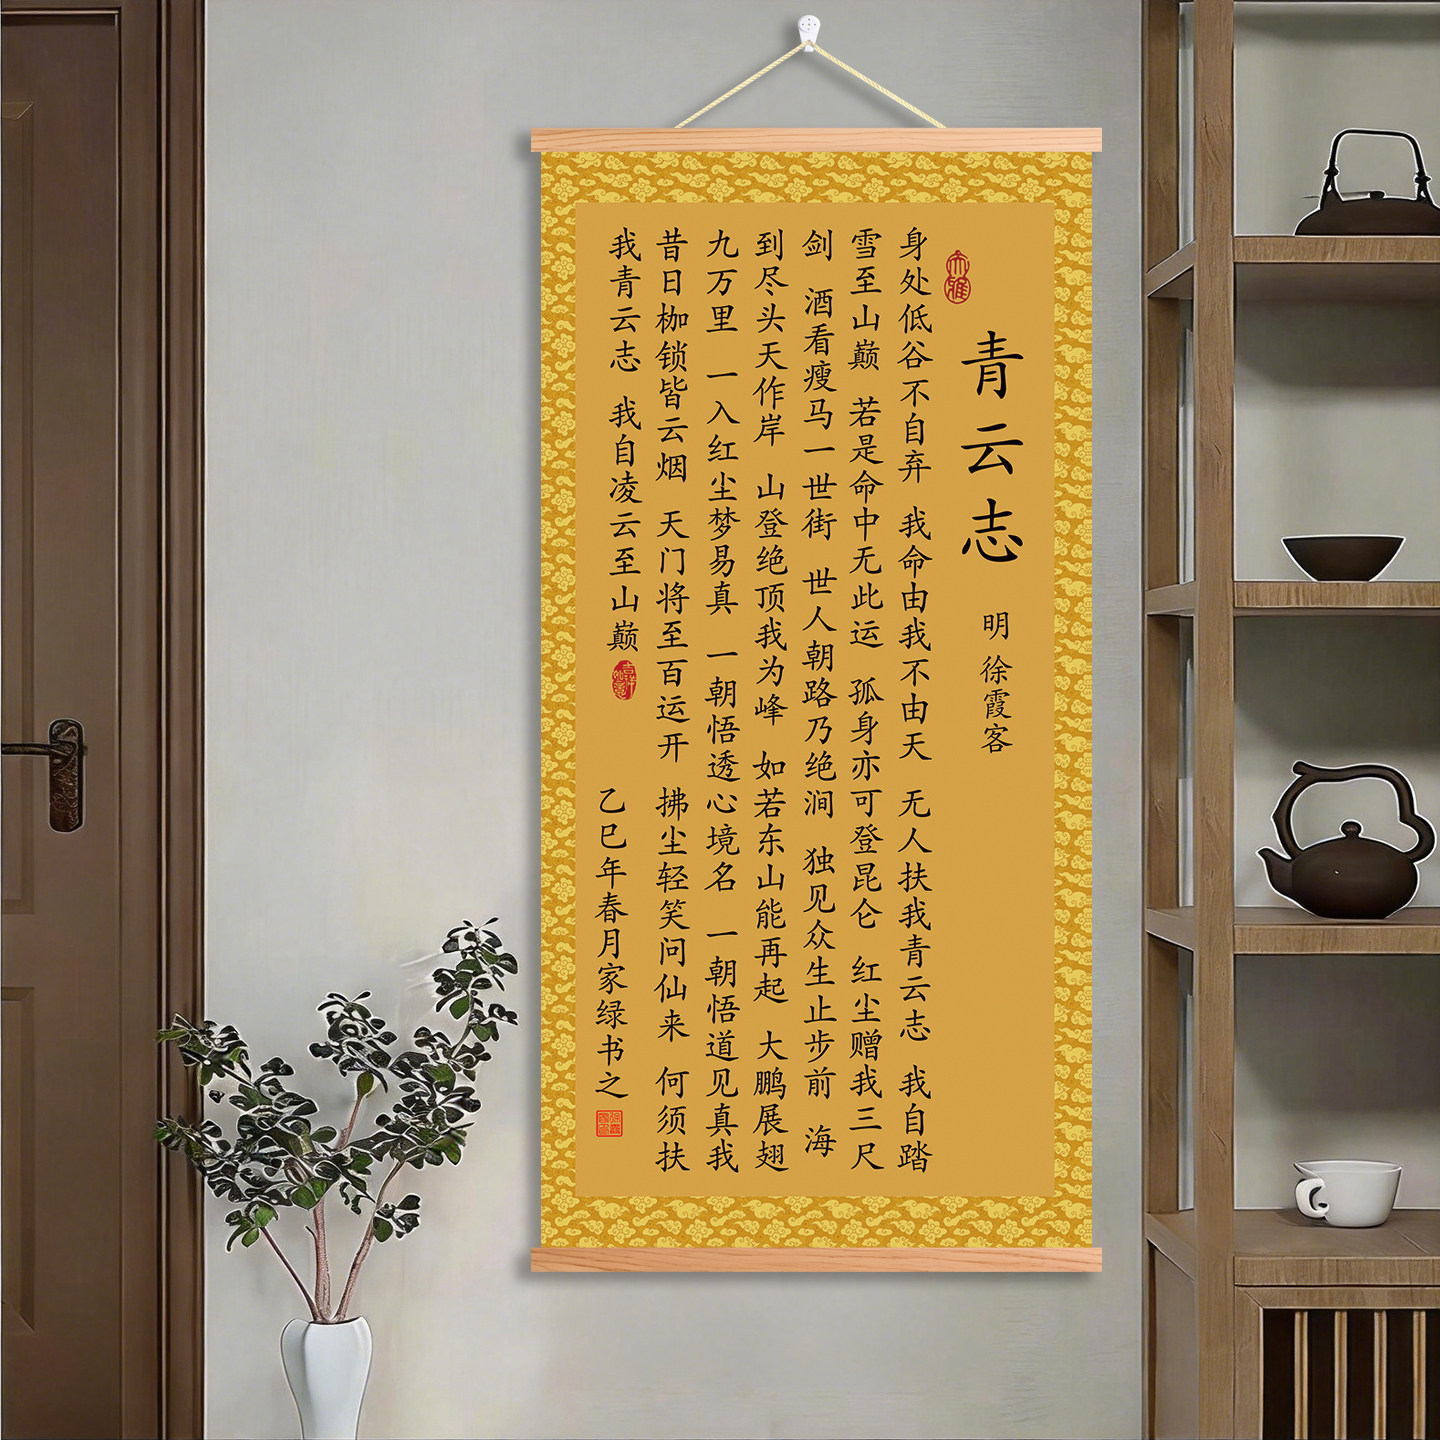 青云志
明 徐霞客
身处低谷不自弃 我命由我不由天 无人扶我青云志 我自踏
雪至山巅 若是命中无此运 孤身亦可登昆仑 红尘赠我三尺
剑 酒看瘦马一世街 世人朝路乃绝涧 独见众生止步前 海
到尽头天作岸 山登绝顶我为峰 如若东山能再起 大鹏展翅
九万里 一入红尘梦易真 一朝悟透心境名 一朝悟道见真我
昔日枷锁皆云烟 天门将至百运开 拂尘轻笑问仙来 何须扶
我青云志 我自凌云至山巅
乙巳年春月家绿书之